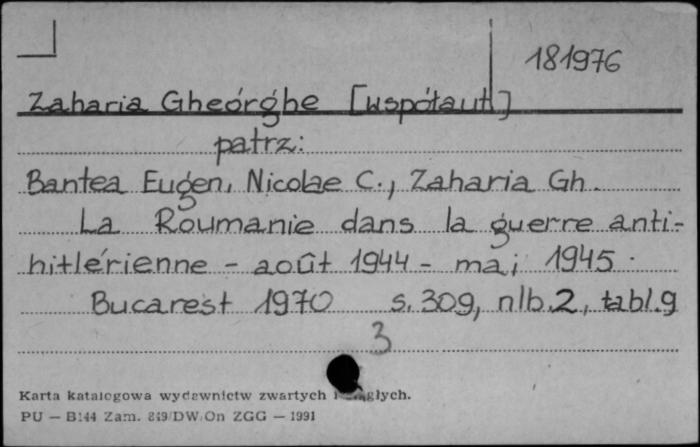 181976
Zaharia Gheórghe [współaut.]
patrz:
Bantea Eugen, Nicolae C., Zaharia Gh.
La Roumanie dans la guerre anti-
hitlérienne - août 1944 - mai 1945.
Bucarest 1970 s. 309, nlb. 2, tabl. 9
3
Karta katalogowa wydawnictw zwartych i ciągłych.
PU — B144 Zam. 849/DW/On ZGG — 1991